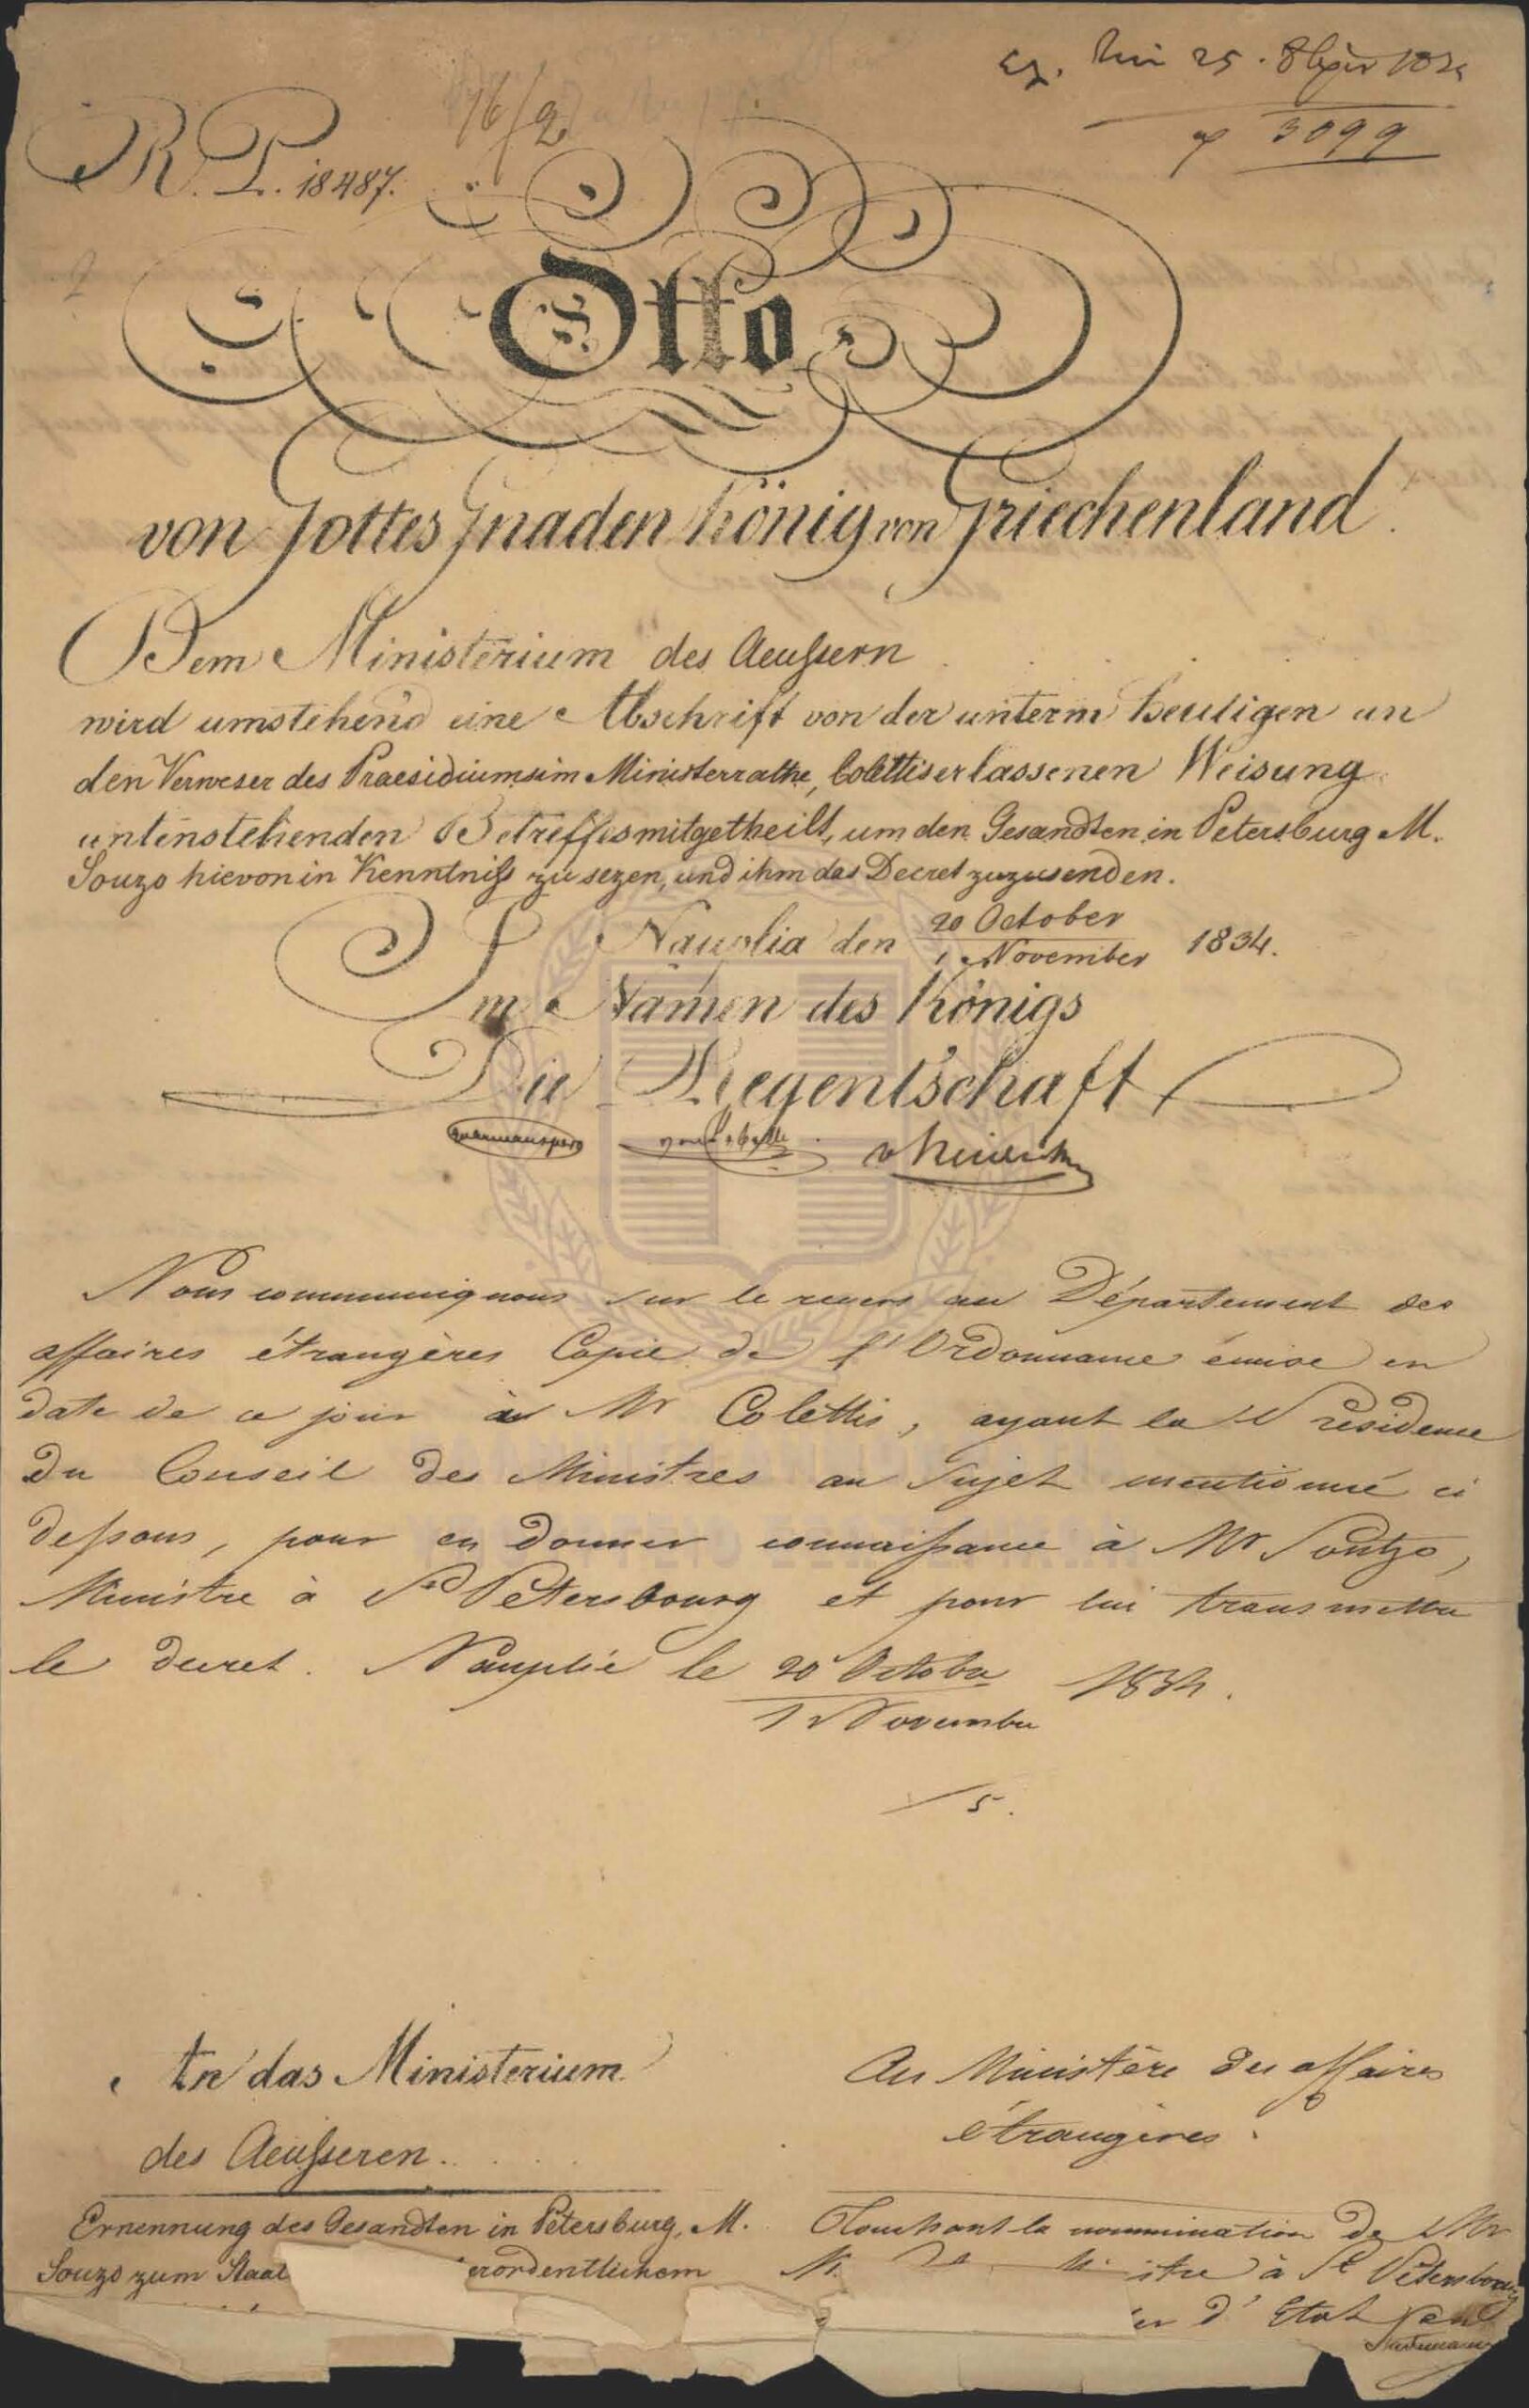 25. 8bpiv 1834
3099
16/2
R. P. 18487.
Otto
von Gottes Gnaden König von Griechenland.
Dem Ministerium des Aeußern
wird umstehend eine Abschrift von der unterm Heutigen an
den Verweser des Praesidiums im Ministerrathe, Colettis erlassenen Weisung
untenstehenden Betreffes mitgetheilt, um den Gesandten in Petersburg M.
Souzo hievon in Kenntniß zu sezen, und ihm das Decret zuzusenden.
Nauplia den 20 October / 1. November 1834.
Im Namen des Königs
Die Regentschaft
Nous communiquons sur le revers au Département des
affaires étrangères Copie de l'Ordonnance émise en
date de ce jour à Mr Colettis, ayant la Présidence
du Conseil des Ministres au sujet mentionné ci
deßous, pour en donner connaißance à Mr Soutzo,
Ministre à St Petersbourg et pour lui transmettre
le decret. Nauplie le 20 Octobre / 1 Novembre 1834.
An das Ministerium
des Aeußeren.
Au Ministère des affaires
étrangères.
Ernennung des Gesandten in Petersburg, M.
Souzo zum Staat erordentlichem
Touchant la nommination de Mr
istre à St Petersbourg
er d'Etat